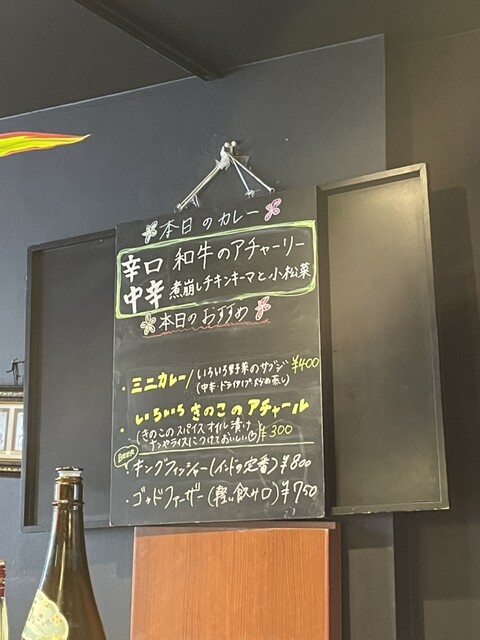 本日のカレー
辛口 和牛のアチャーリー
中辛 煮崩しチキンキーマと小松菜
本日のおすすめ
・ミニカレー/いろいろ野菜のサブジ ¥400
(中辛・ドライタイプ
・いろいろきのこのアチャール
(きのこのスパイスオイル漬け
ナンやライスにつけておいしい) ¥300
BEER
・キングフィッシャー(インドの定番) ¥800
・ゴッドファーザー(軽い飲み口) ¥750